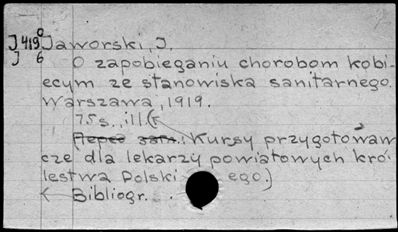 J419⁰ Jaworski, J.
J 6 O zapobieganiu chorobom kobi-
ecym ze stanowiska sanitarnego.
Warszawa, 1919.
75s., ill (
Kursy przygotowaw
cze dla lekarzy powiatowych kró-
lestwa Polski ego.)
Bibliogr.